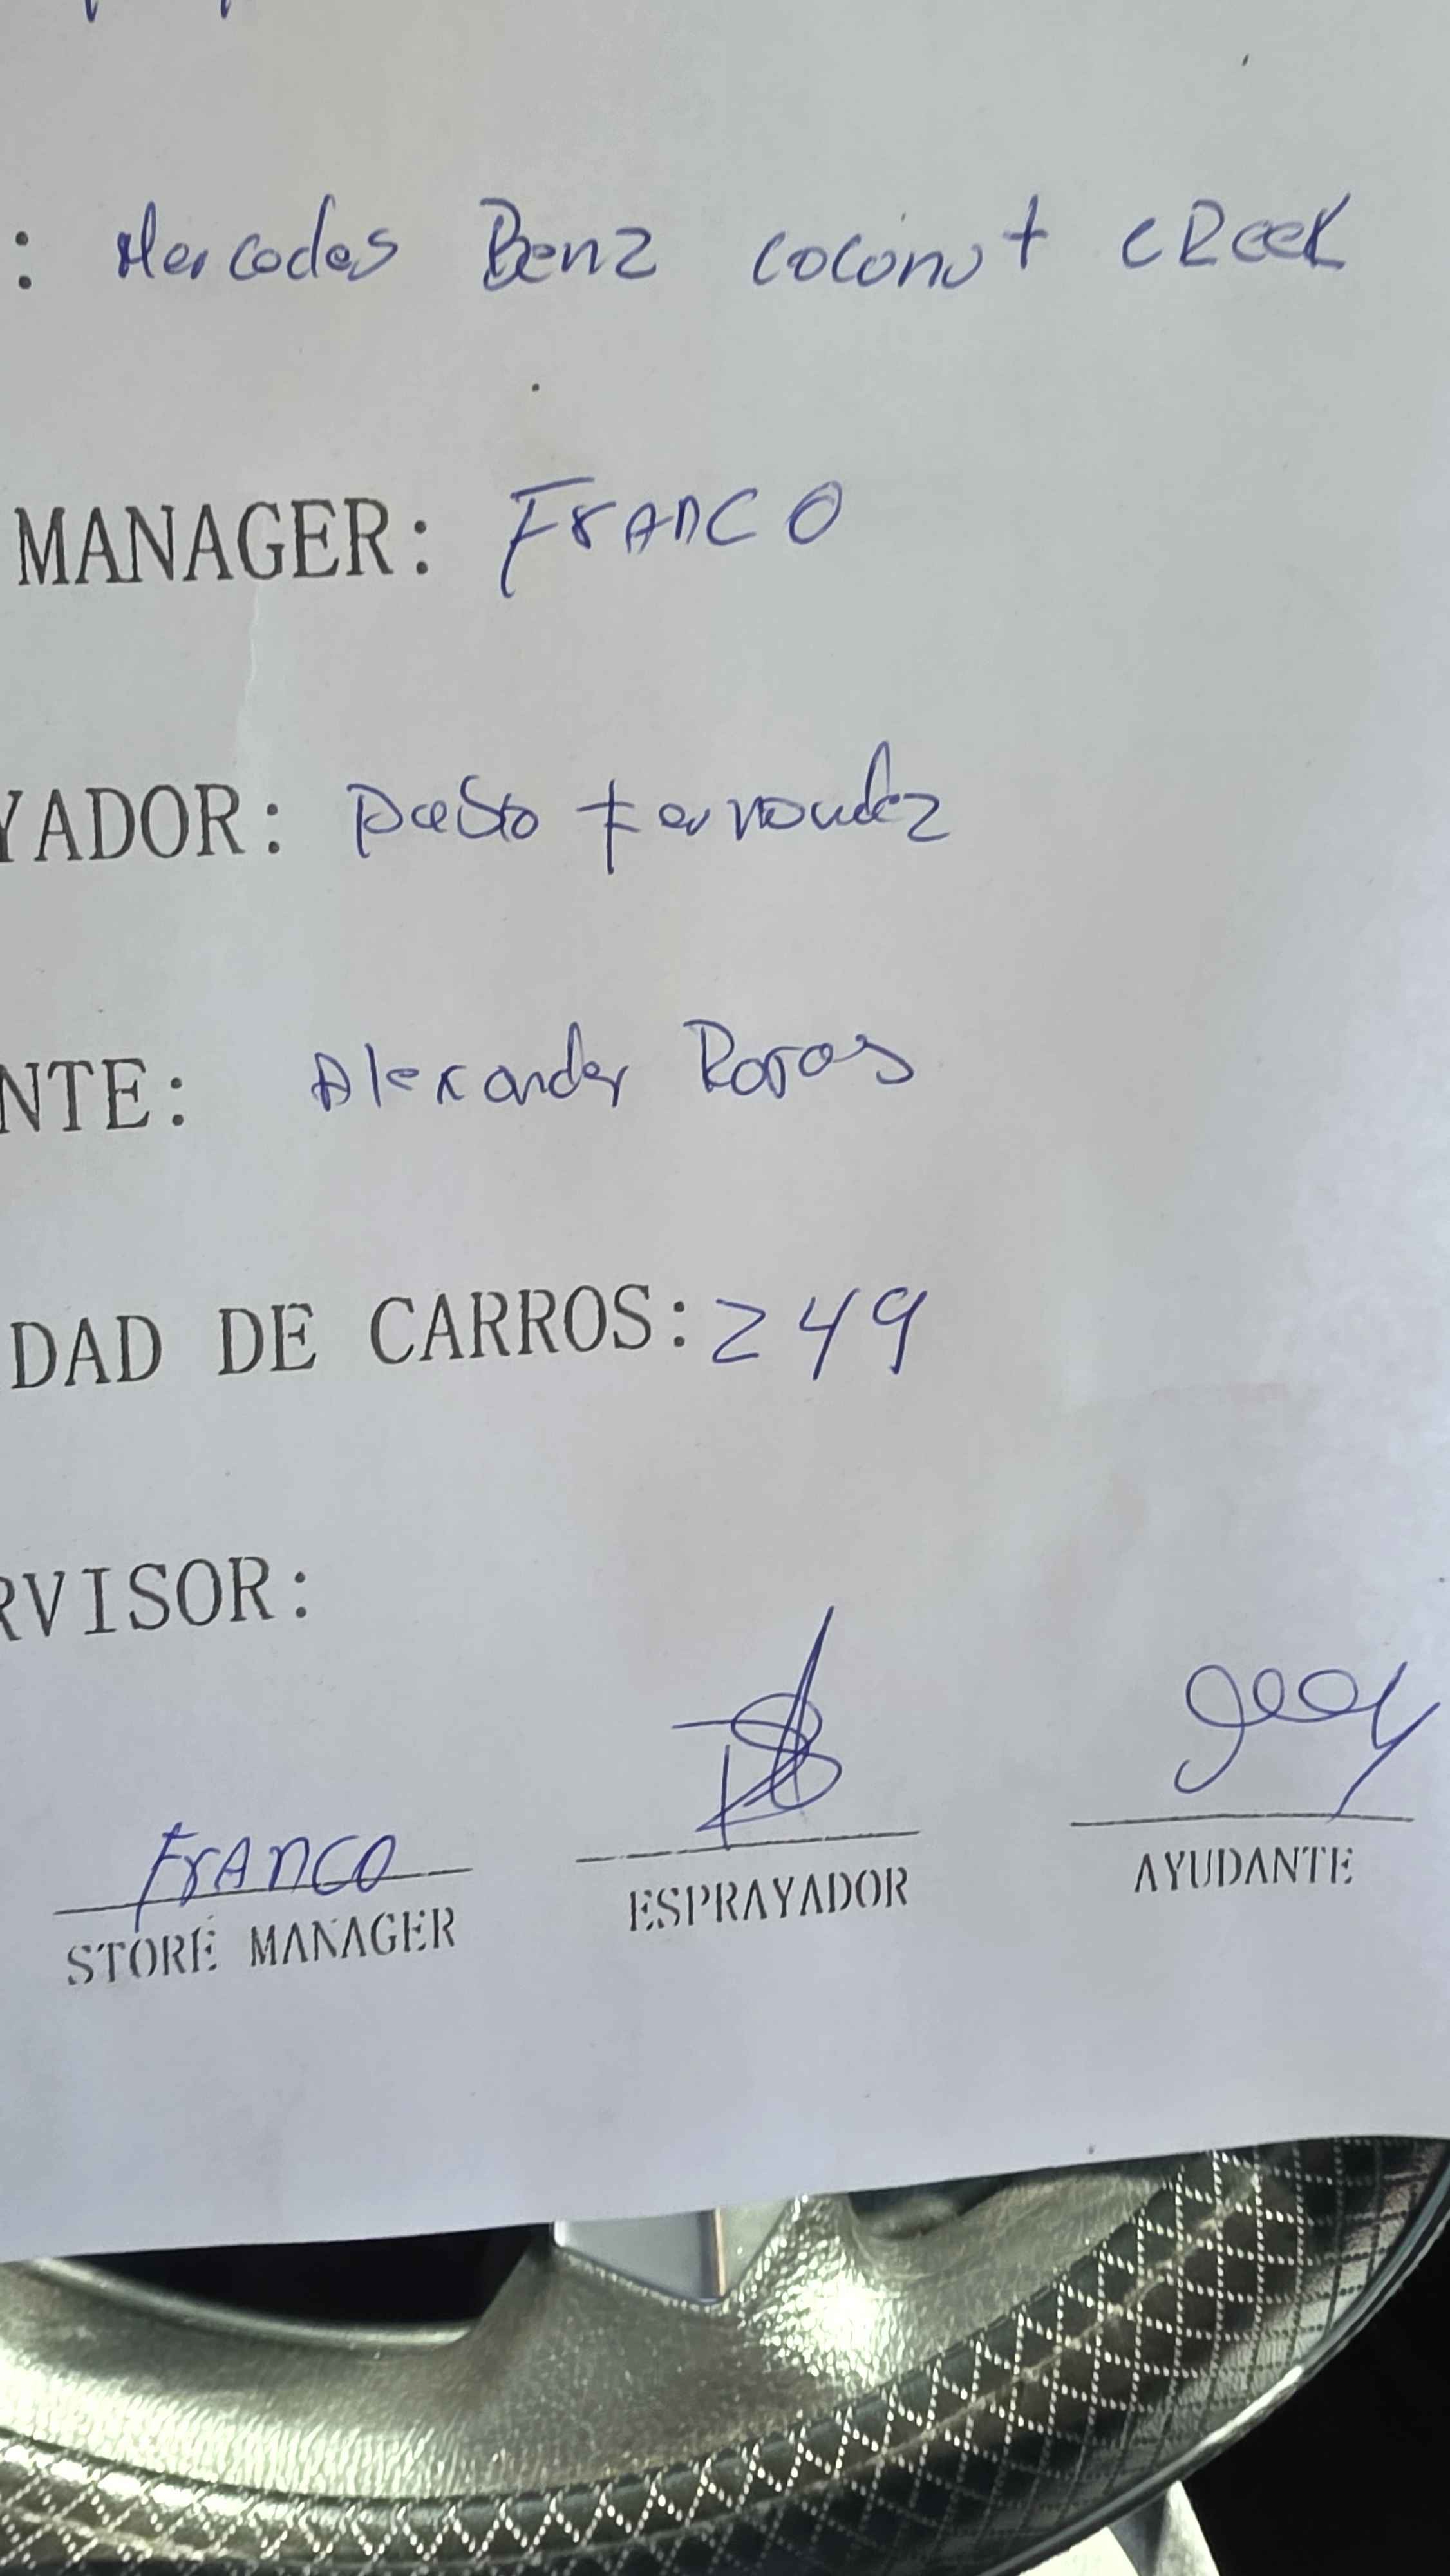 : Mercedes Benz coconut cReek
MANAGER: FrANCO
YADOR: Pablo Fernandez
NTE: Alexander Rojas
DAD DE CARROS: 249
RVISOR:
FrANCO
STORE MANAGER ESPRAYADOR AYUDANTE